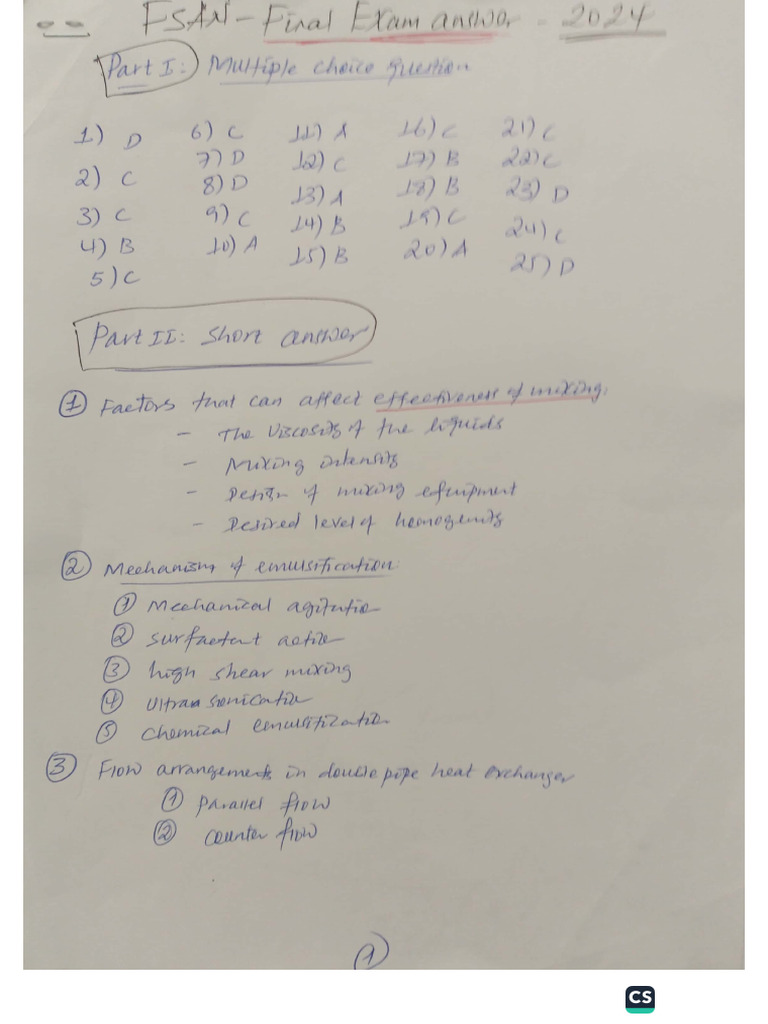 FSAN - Final Exam answer - 2024
Part I: Multiple choice question
1) D
2) C
3) C
4) B
5) C
6) C
7) D
8) D
9) C
10) A
11) A
12) C
13) A
14) B
15) B
16) C
17) B
18) B
19) C
20) A
21) C
22) C
23) D
24) C
25) D
Part II: Short answer
① Factors that can affect effectiveness of mixing:
- The Viscosity of the liquids
- Mixing intensity
- Design of mixing equipment
- Desired level of homogenity
② Mechanism of emulsification:
① Mechanical agitation
② surfactant active
③ high shear mixing
④ Ultra sonication
⑤ Chemical emulsification
③ Flow arrangements in double pipe heat exchanger
① parallel flow
② counter flow
①
CS